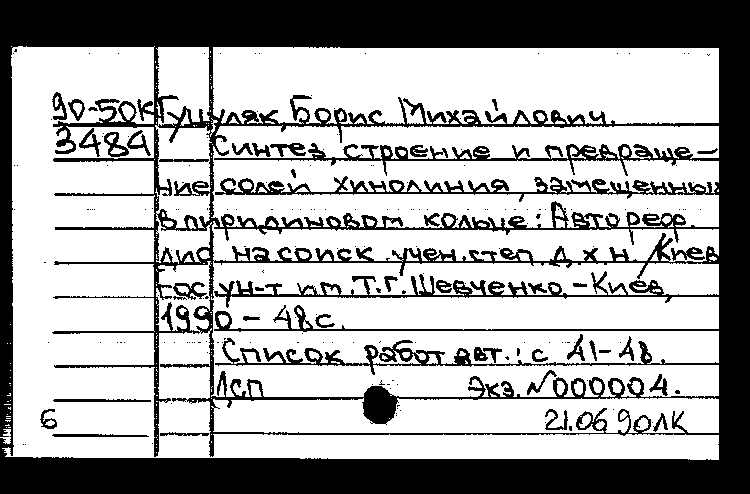 90-50К Гуцуляк, Борис Михайлович.
3484 Синтез, строение и превраще-
ние солей хинолиния, замещенных
в пиридиновом кольце: Автореф.
дис на соиск. учен. степ. д.х.н. / Киев
гос. ун-т им. Т.Г. Шевченко. - Киев,
1990. - 48 с.
Список работ авт.: с 41-48.
ДСП Экз. №000004.
6 21.06 90ЛК